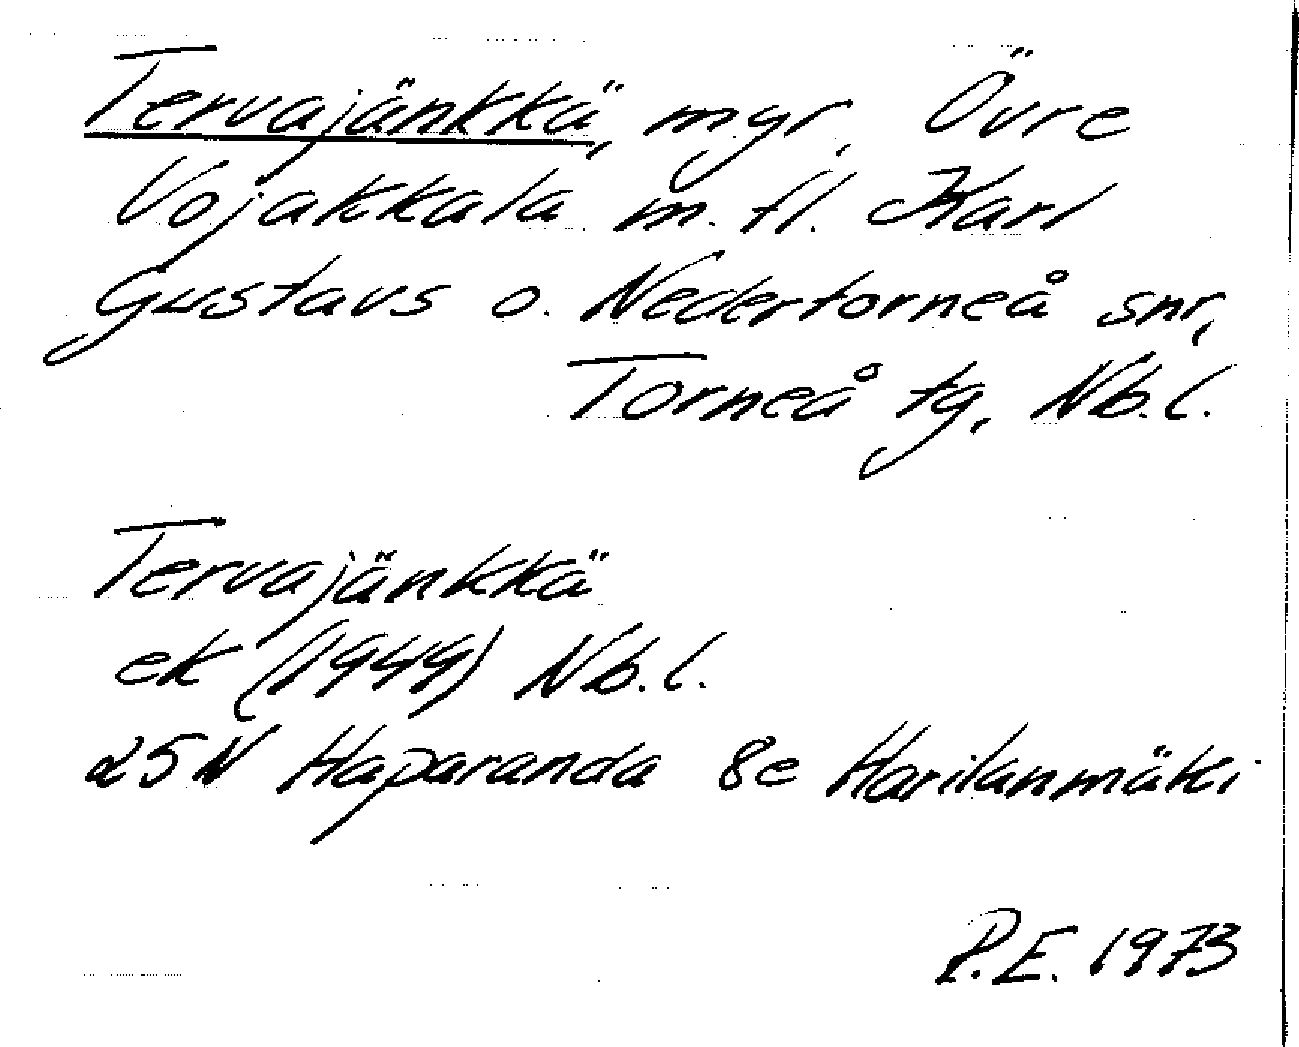 Tervajänkkä, mgr, Övre
Vojakkala m. fl. Karl
Gustavs o. Nedertorneå snr,
Torneå tg, Nb.l.
Tervajänkkä
ek (1949) Nb.l.
25N Haparanda 8e Harilanmäki
P.E. 1973